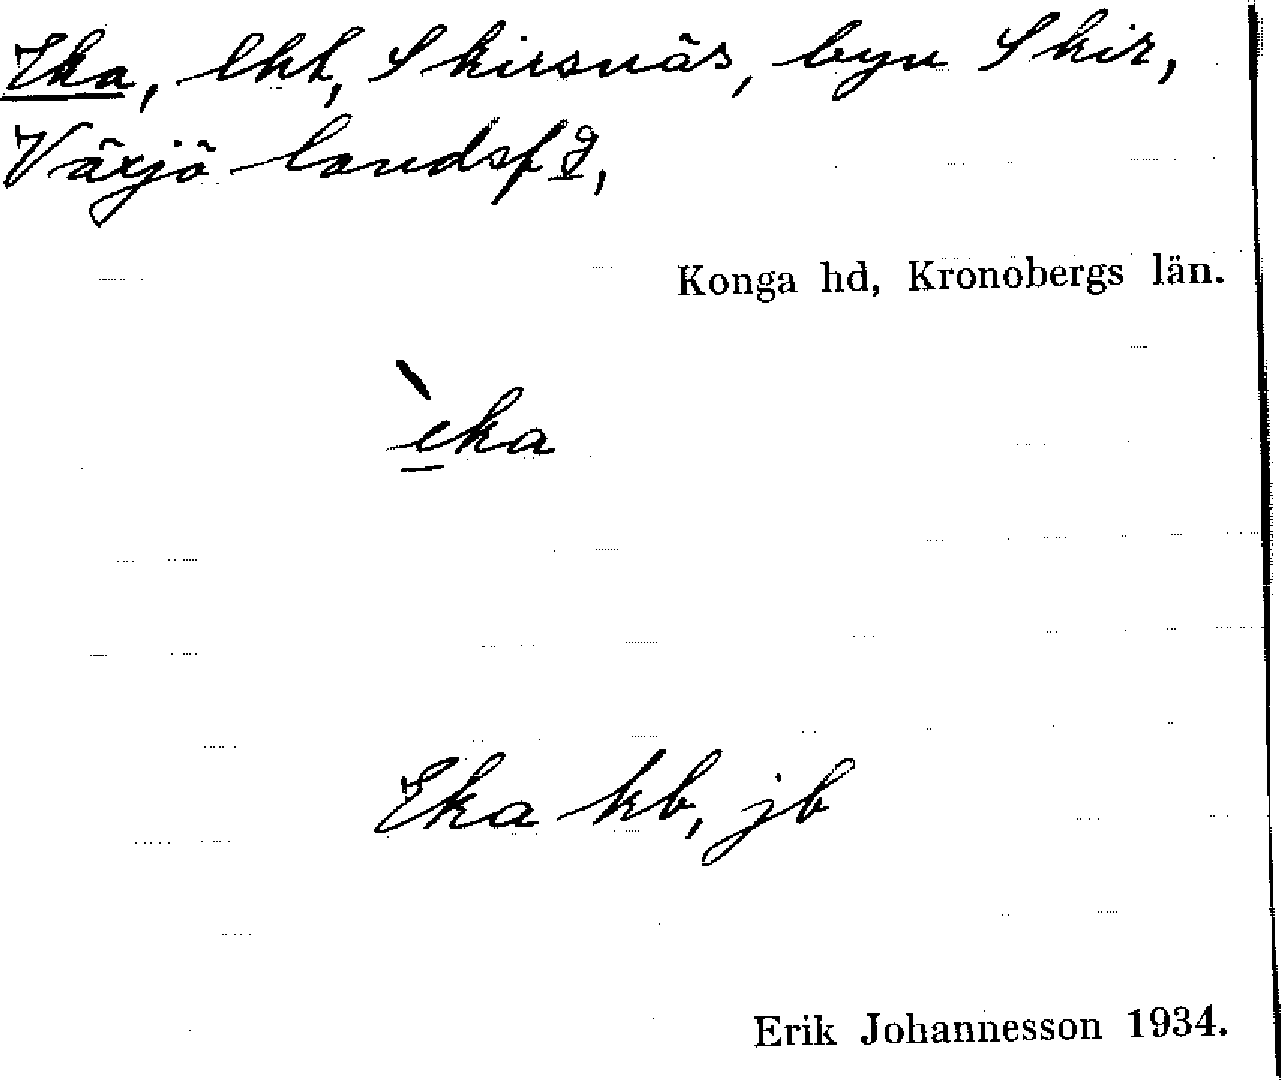 Eka, lht, Skirsnäs, byn Skir,
Växjö landsf 2,
Konga hd, Kronobergs län.
èka
Eka kb, jb
Erik Johannesson 1934.